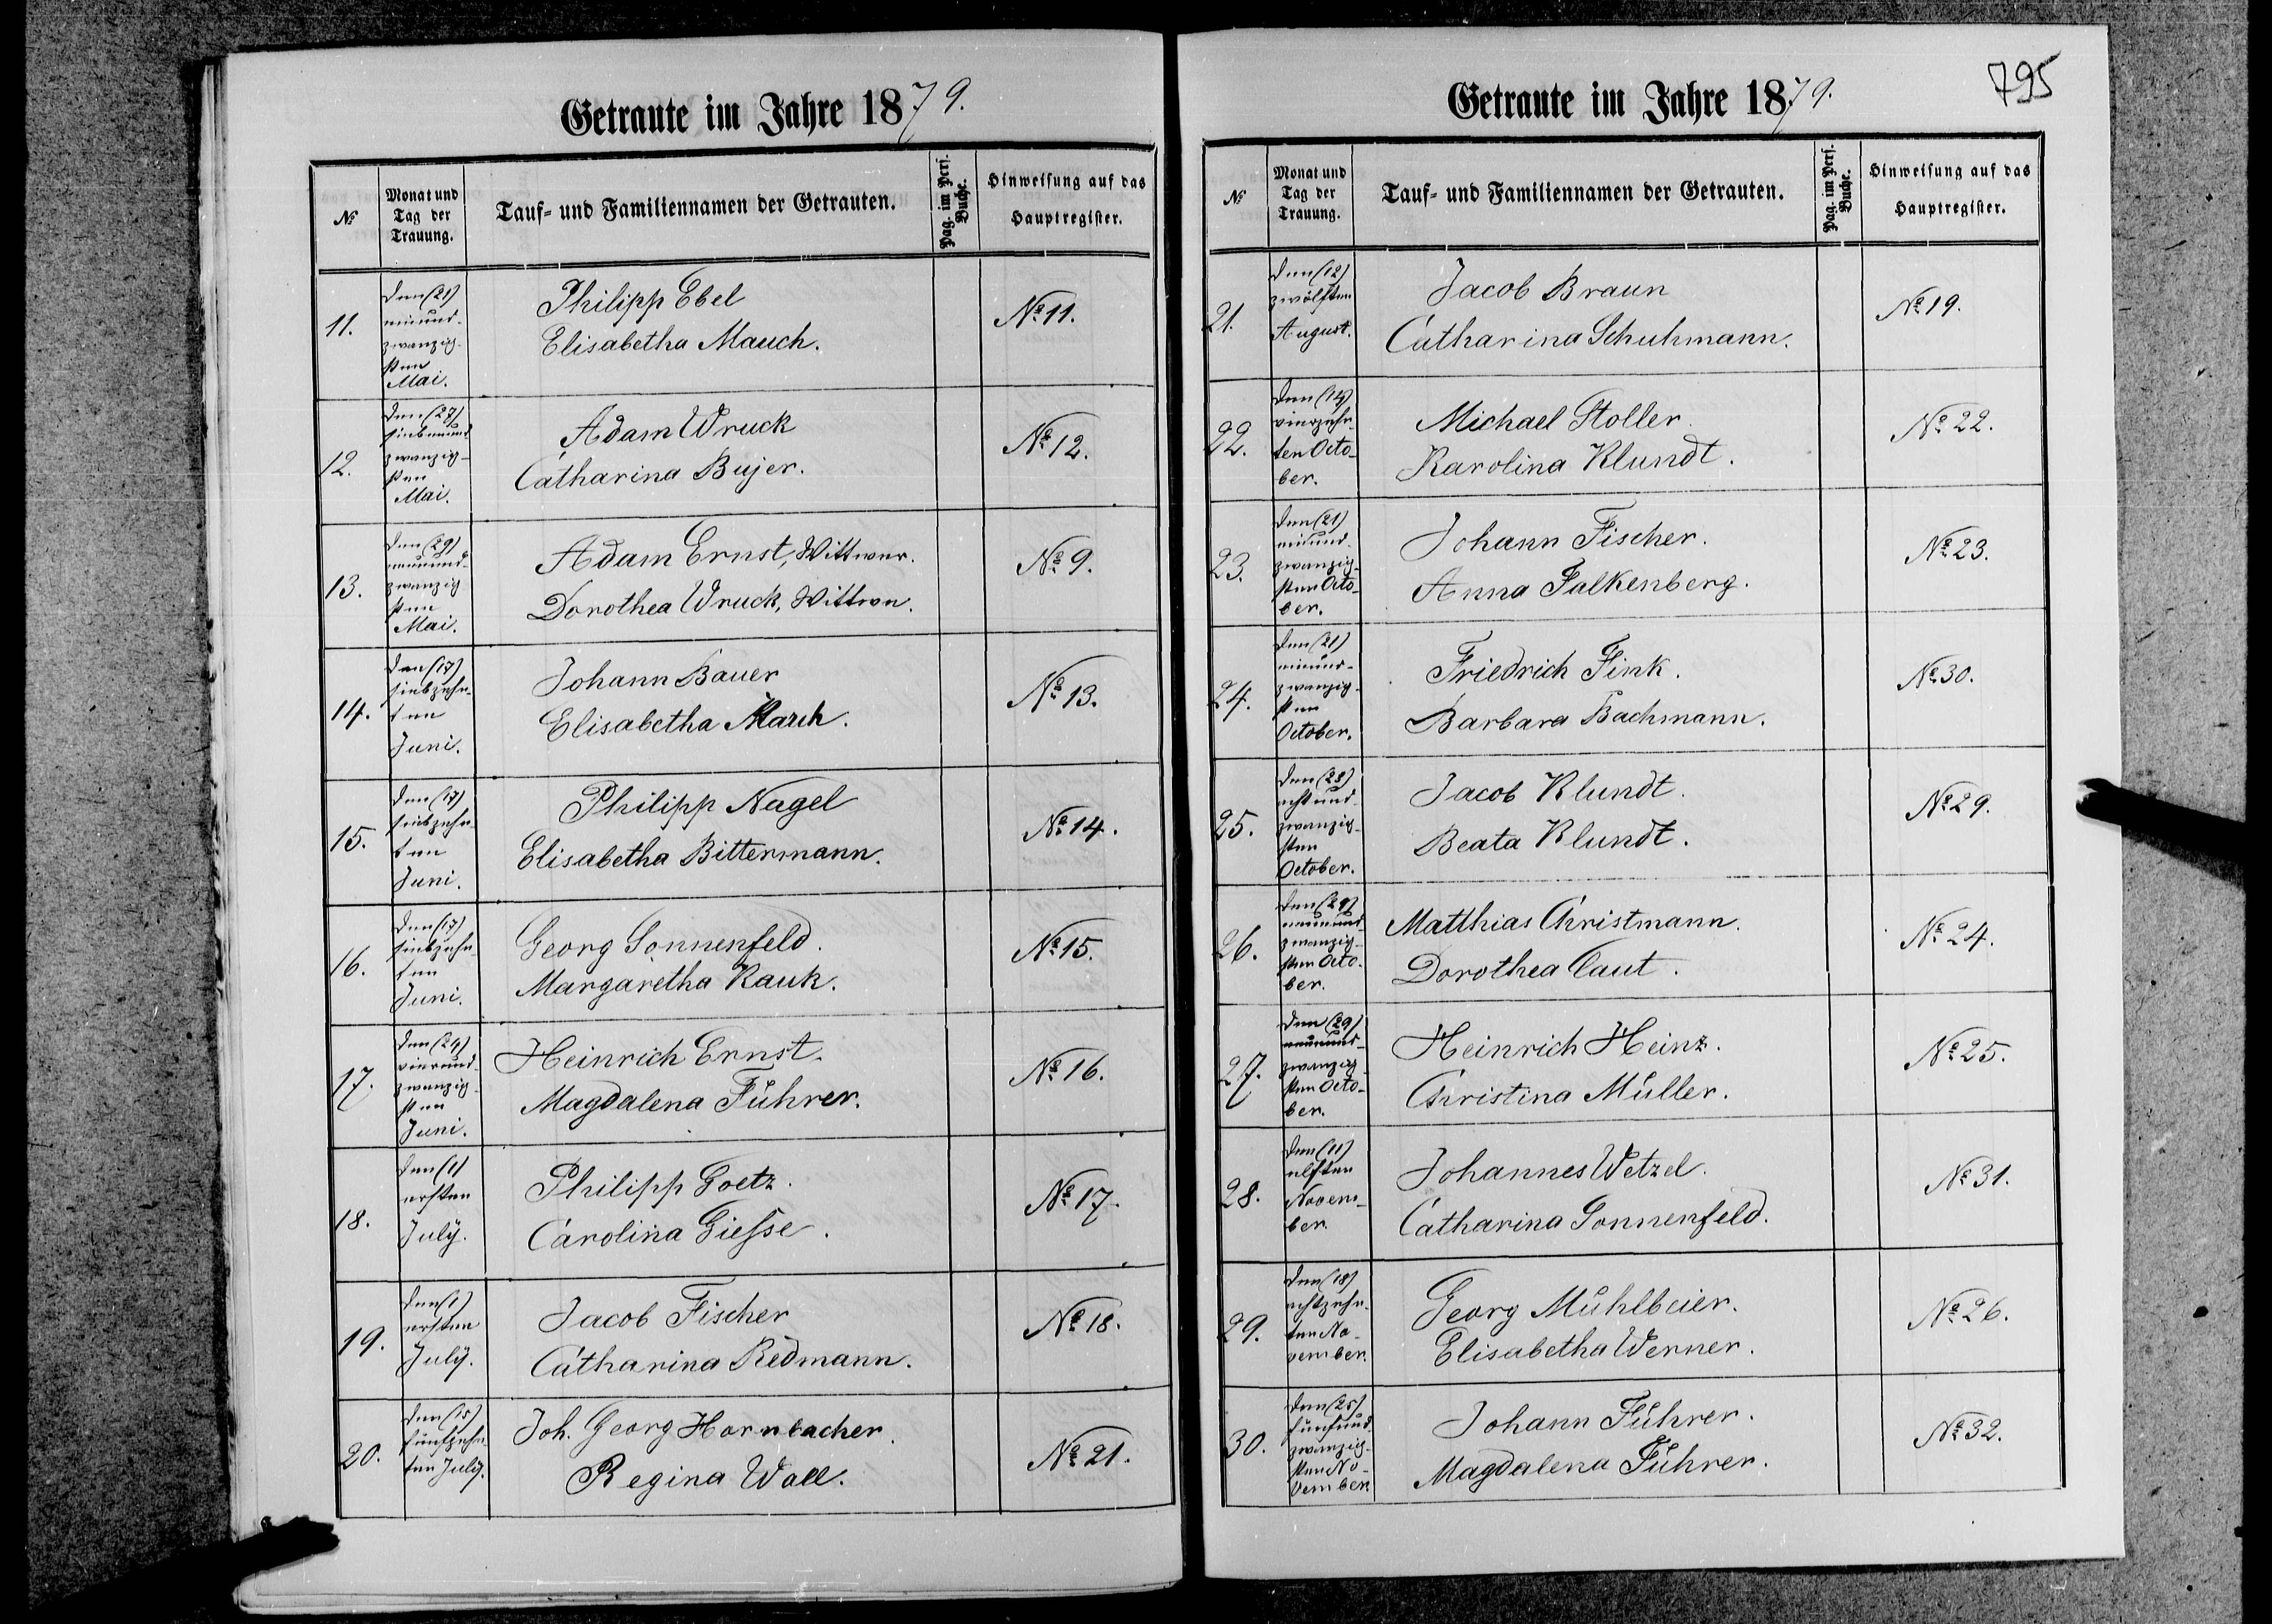 Getraute im Jahre 1879.
№
Monat und
Tag der
Trauung.
Tauf- und Familiennamen der Getrauten.
Pag. im Pers.
Buche.
Hinweisung auf das
Hauptregister.
11.
den (21)
einund-
zwanzig-
sten
Mai.
Philipp Ebel
Elisabetha Mauch.
№ 11.
12.
den (27)
siebenund
zwanzig-
sten
Mai.
Adam Wruck
Catharina Bujer.
№ 12.
13.
den (29)
neunund-
zwanzig
sten
Mai.
Adam Ernst, Wittwer.
Dorothea Wruck, Wittwe.
№ 9.
14.
den (17)
siebzehn-
ten
Juni.
Johann Bauer
Elisabetha
№ 13.
15.
den (17)
siebzehn-
ten
Juni.
Philipp Nagel
Elisabetha Bittermann.
№ 14.
16.
den (17)
siebzehn-
ten
Juni.
Georg Sonnenfeld.
Margaretha Rauk.
№ 15.
17.
den (24)
vierund-
zwanzig-
sten
Juni.
Heinrich Ernst.
Magdalena Führer.
№ 16.
18.
den (1)
ersten
July.
Philipp Goetz.
Carolina Giesse.
№ 17.
19.
den (1)
ersten
July.
Jacob Fischer
Catharina Redmann.
№ 18.
20.
den (15)
fünfzehn-
ten July.
Joh. Georg Hornbacher.
Regina Wall.
№ 21.
795
Getraute im Jahre 1879.
№
Monat und
Tag der
Trauung.
Tauf- und Familiennamen der Getrauten.
Pag. im Pers.
Buche.
Hinweisung auf das
Hauptregister.
21.
den (12)
zwölften
August.
Jacob Braun
Catharina Schuhmann.
№ 19.
22.
den (14)
vierzehn-
ten Octo-
ber.
Michael Stoller.
Karolina Klundt.
№ 22.
23.
den (21)
einund-
zwanzig-
sten Octo-
ber.
Johann Fischer.
Anna Falkenberg.
№ 23.
24.
den (21)
einund-
zwanzig-
sten
October.
Friedrich Fink.
Barbara Bachmann.
№ 30.
25.
den (28)
achtund-
zwanzig-
sten
October.
Jacob Klundt.
Beata Klundt.
№ 29.
26.
den (29)
neunund-
zwanzig-
sten Octo-
ber.
Matthias Christmann.
Dorothea Caut.
№ 24.
27.
den (29)
neunund-
zwanzig-
sten Octo-
ber.
Heinrich Heinz.
Christina Müller.
№ 25.
28.
den (11)
elften
Novem-
ber.
Johannes Wetzel.
Catharina Sonnenfeld.
№ 31.
29.
den (18)
achtzehn-
ten No-
vember.
Georg Mühlbeier.
Elisabetha Werner.
№ 26.
30.
den (25)
fünfund-
zwanzig-
sten No-
vember.
Johann Führer.
Magdalena Führer.
№ 32.